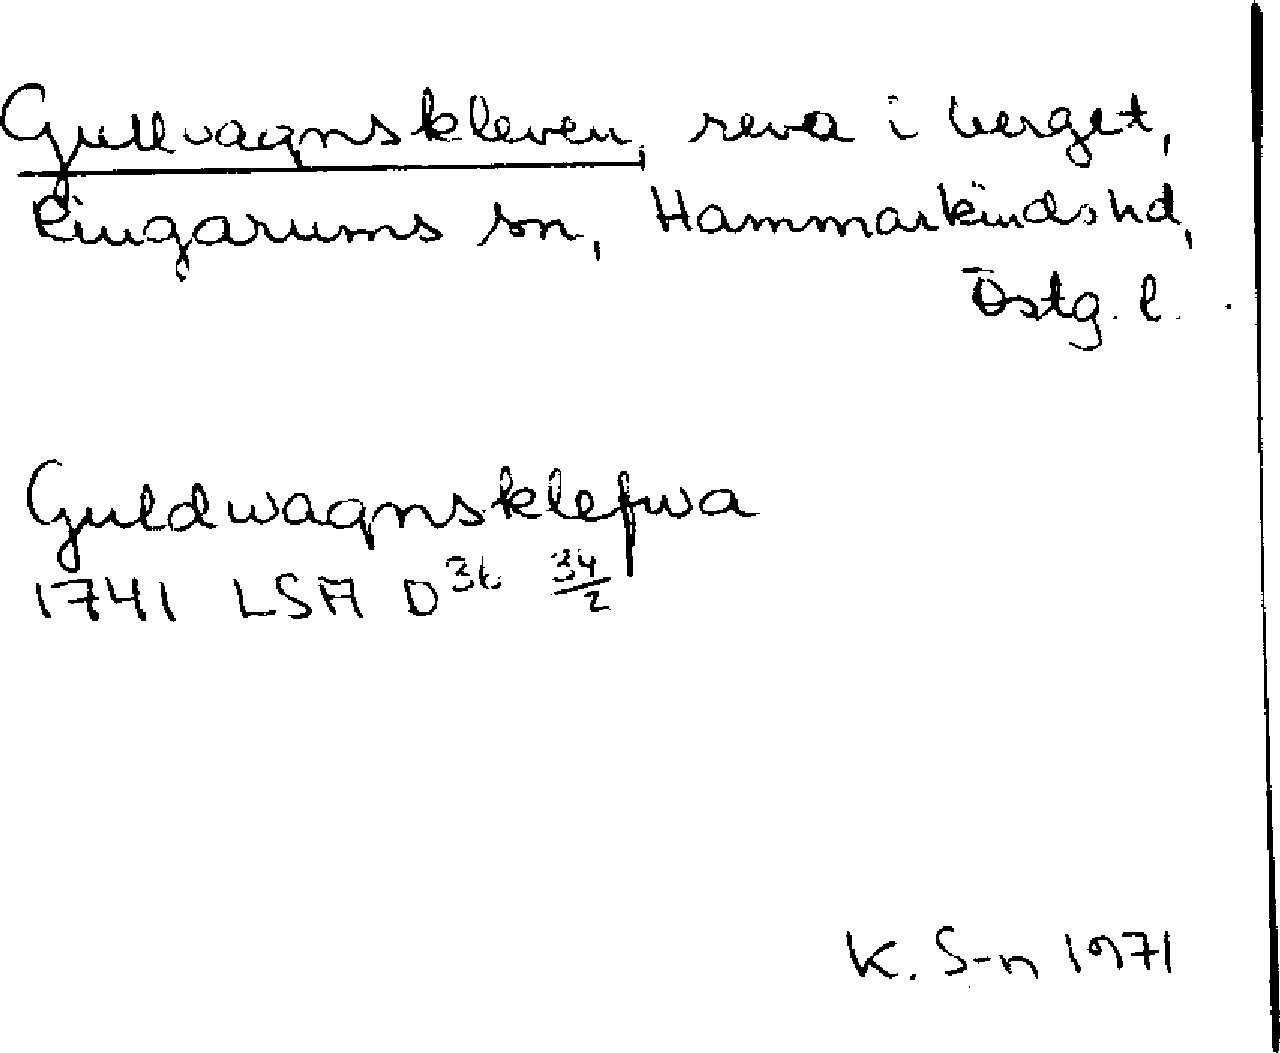 Gullvagnskleven, reva i berget,
Ringarums sn, Hammarkinds hd,
Östg. l.
Guldwagnsklefwa
1741 LSA D36 34/2
K. S-n 1971